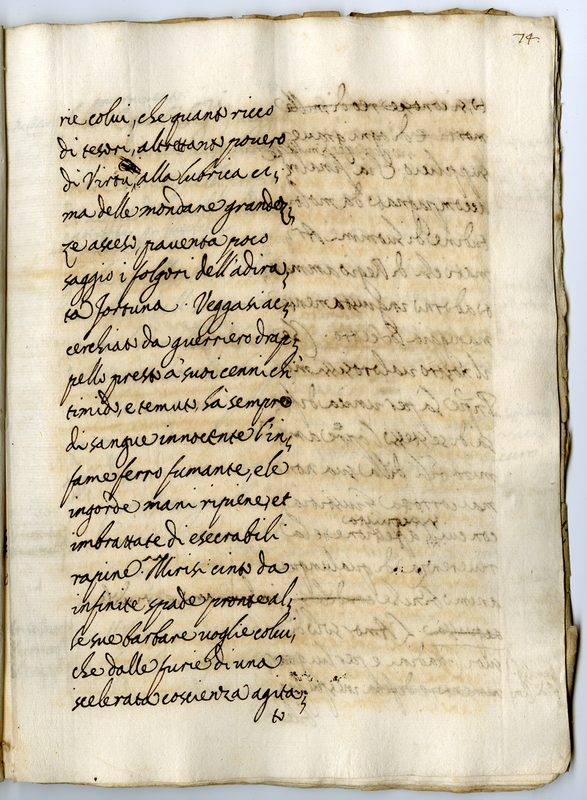 74.
rie colui, che quanto ricco
di tesori, altrettanto povero
di Virtù, alla lubrica ci,
ma delle mondane grandez,
ze asceso, paventa poco
saggio i folgori dell'adira,
ta fortuna. Veggasi ac,
cerchiato da guerriero drap,
pello presto a' suoi cenni chi
timido, e temuto, hà sempre
di sangue innocente l'in,
fame ferro fumante, e le
ingorde mani ripiene, et
imbrattate di esecrabili
rapine. Mirisi cinto da
infinite spade pronte al,
le sue barbare voglie colui,
che dalle furie di una
scelerata coscienza agita,
to